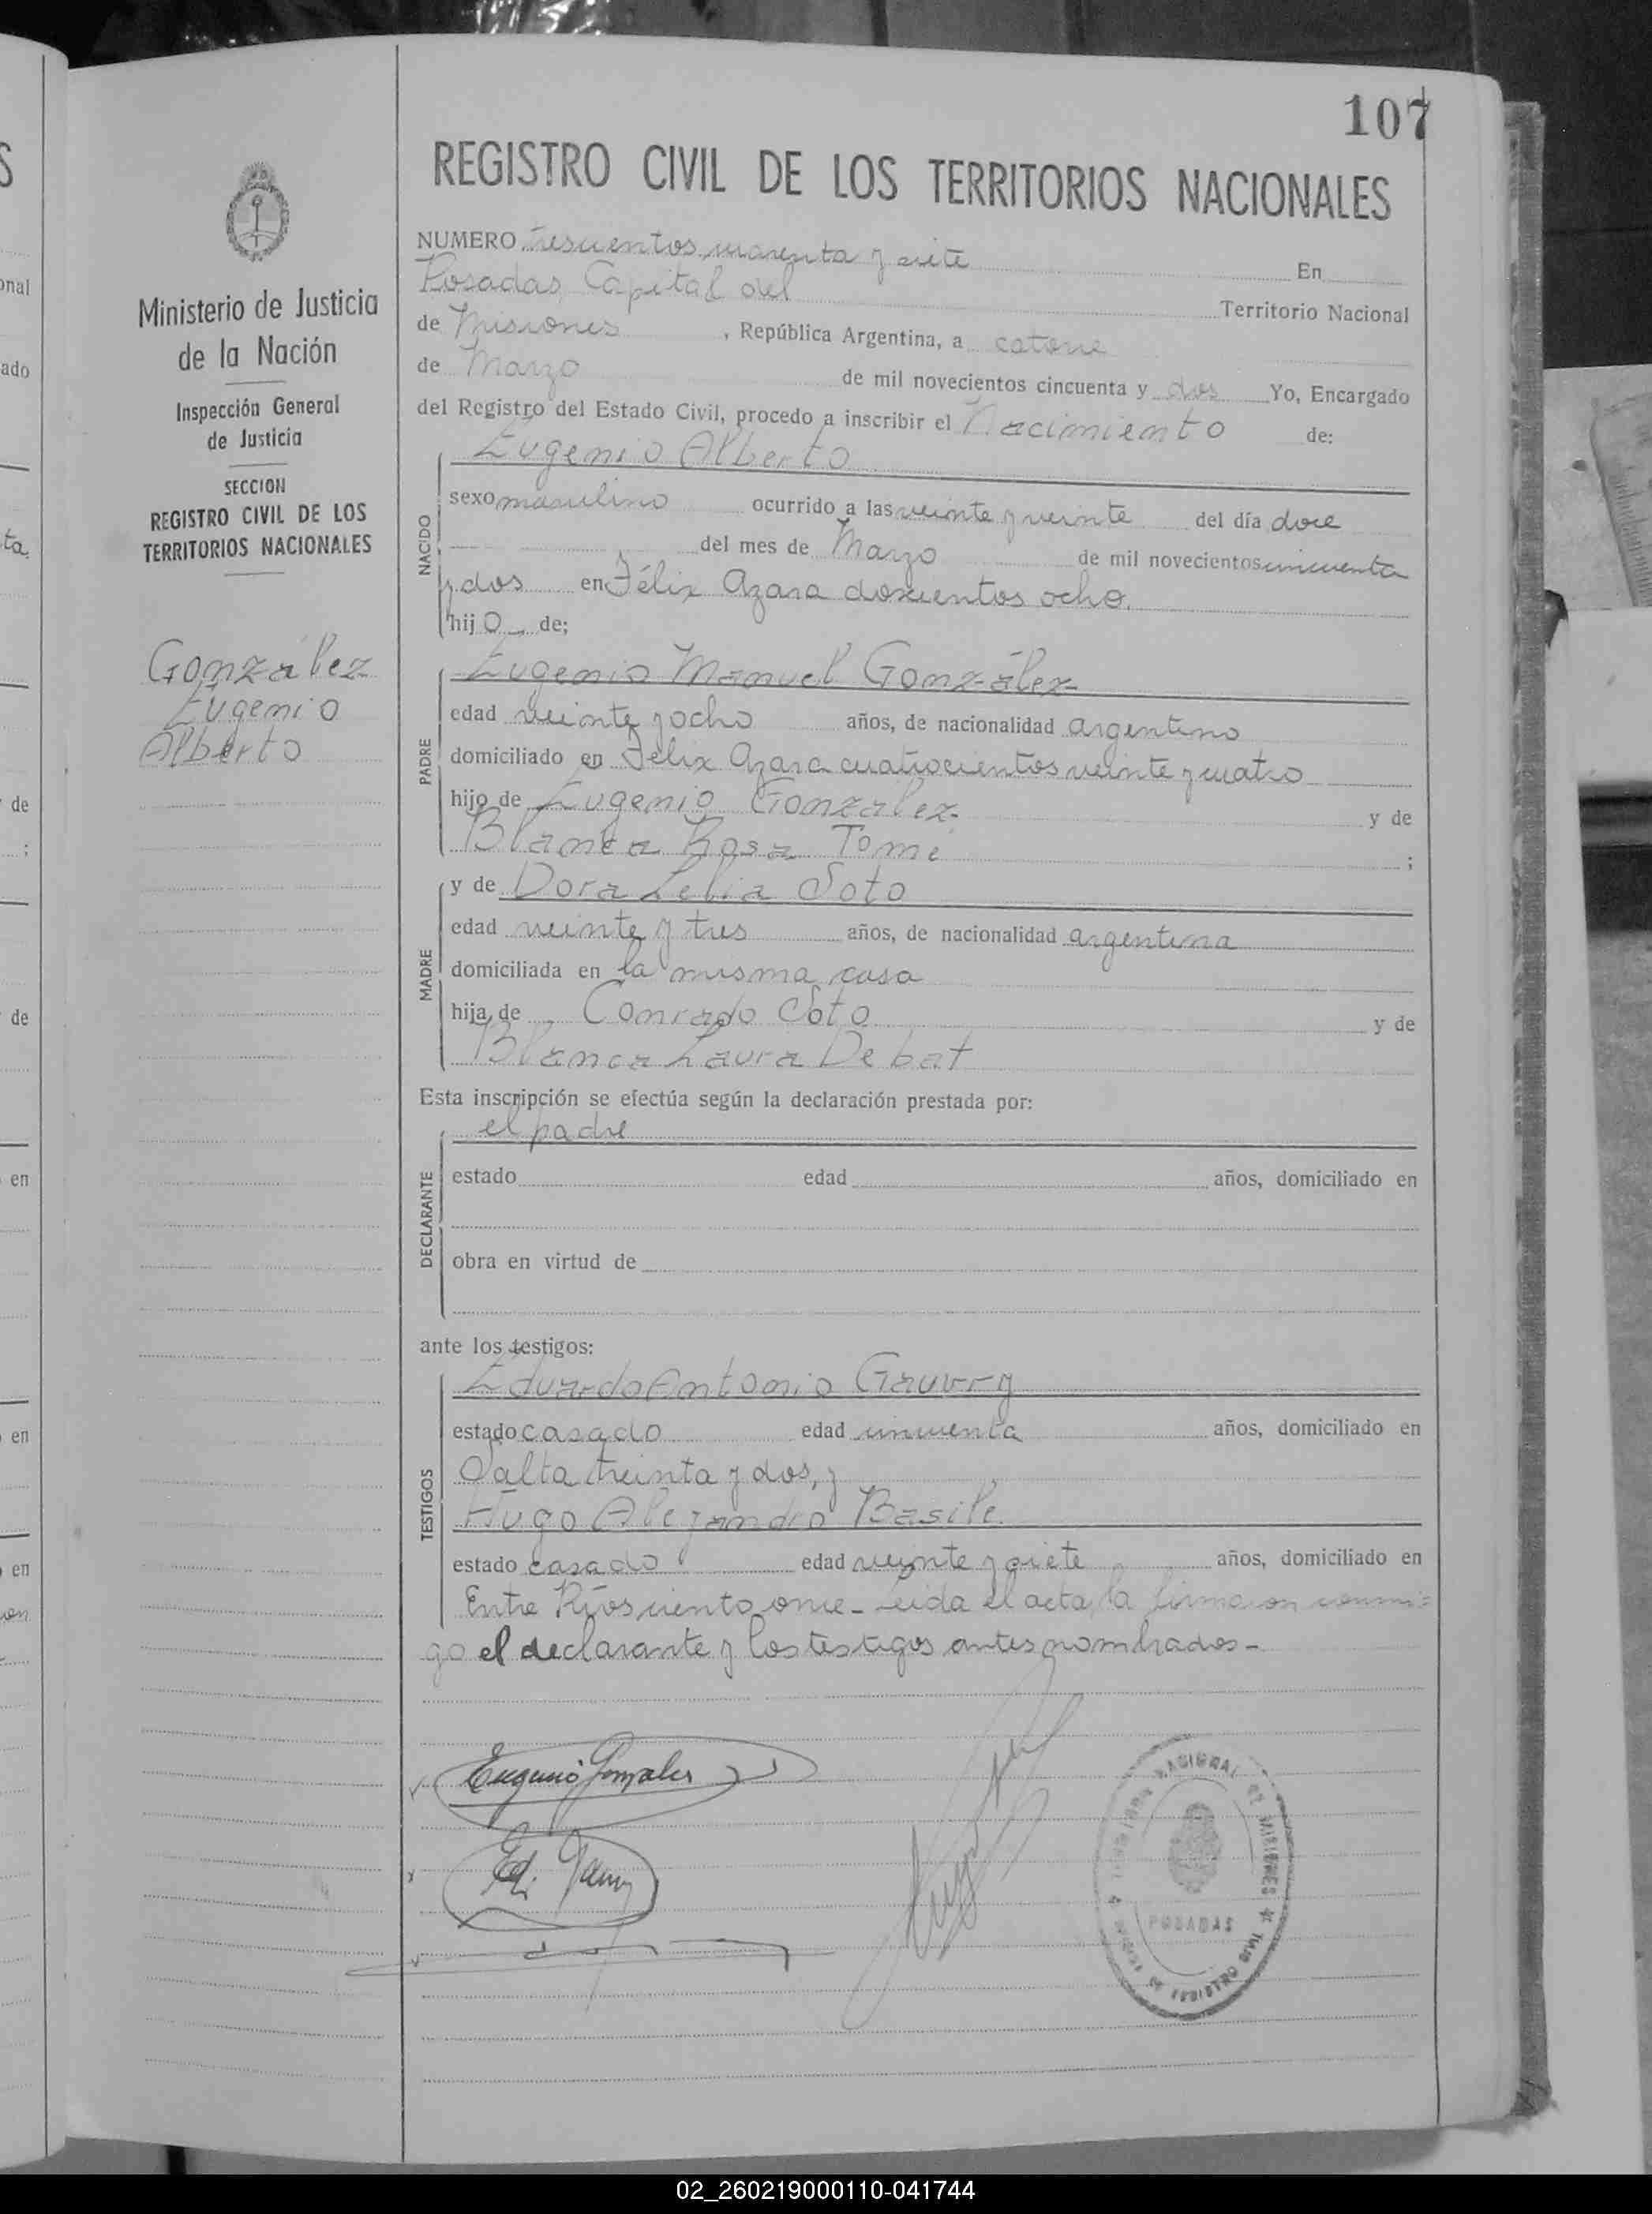 107
REGISTRO CIVIL DE LOS TERRITORIOS NACIONALES
Ministerio de Justicia
de la Nación
Inspección General
de Justicia
SECCION
REGISTRO CIVIL DE LOS
TERRITORIOS NACIONALES
González
Eugenio
Alberto
NUMERO trescientos cuarenta y siete En
Posadas, Capital del Territorio Nacional
de Misiones, República Argentina, a catorce
de Marzo de mil novecientos cincuenta y dos Yo, Encargado
del Registro del Estado Civil, procedo a inscribir el Nacimiento de:
Eugenio Alberto
NACIDO
sexo masculino ocurrido a las veinte y veinte del día doce
del mes de Marzo de mil novecientos cincuenta
y dos en Félix Azara doscientos ocho.
hijo de;
Eugenio Manuel González
PADRE
edad veinte y ocho años, de nacionalidad argentino
domiciliado en Félix Azara cuatrocientos veinte y cuatro
hijo de Eugenio González y de
Blanca Rosa Tomé ;
y de Dora Lelia Soto
MADRE
edad veinte y tres años, de nacionalidad argentina
domiciliada en la misma casa
hija de Conrado Soto y de
Blanca Laura Debat
Esta inscripción se efectúa según la declaración prestada por:
el padre
DECLARANTE
estado edad años, domiciliado en
obra en virtud de
ante los testigos:
Eduardo Antonio Gauvry
TESTIGOS
estado casado edad cincuenta años, domiciliado en
Salta treinta y dos, y
Hugo Alejandro Basile.
estado casado edad veinte y siete años, domiciliado en
Entre Ríos ciento once - Leida el acta, la firmaron conmi=
go el declarante y los testigos antes nombrados -
Eugenio Gonzales
POSADAS
02_260219000110-041744